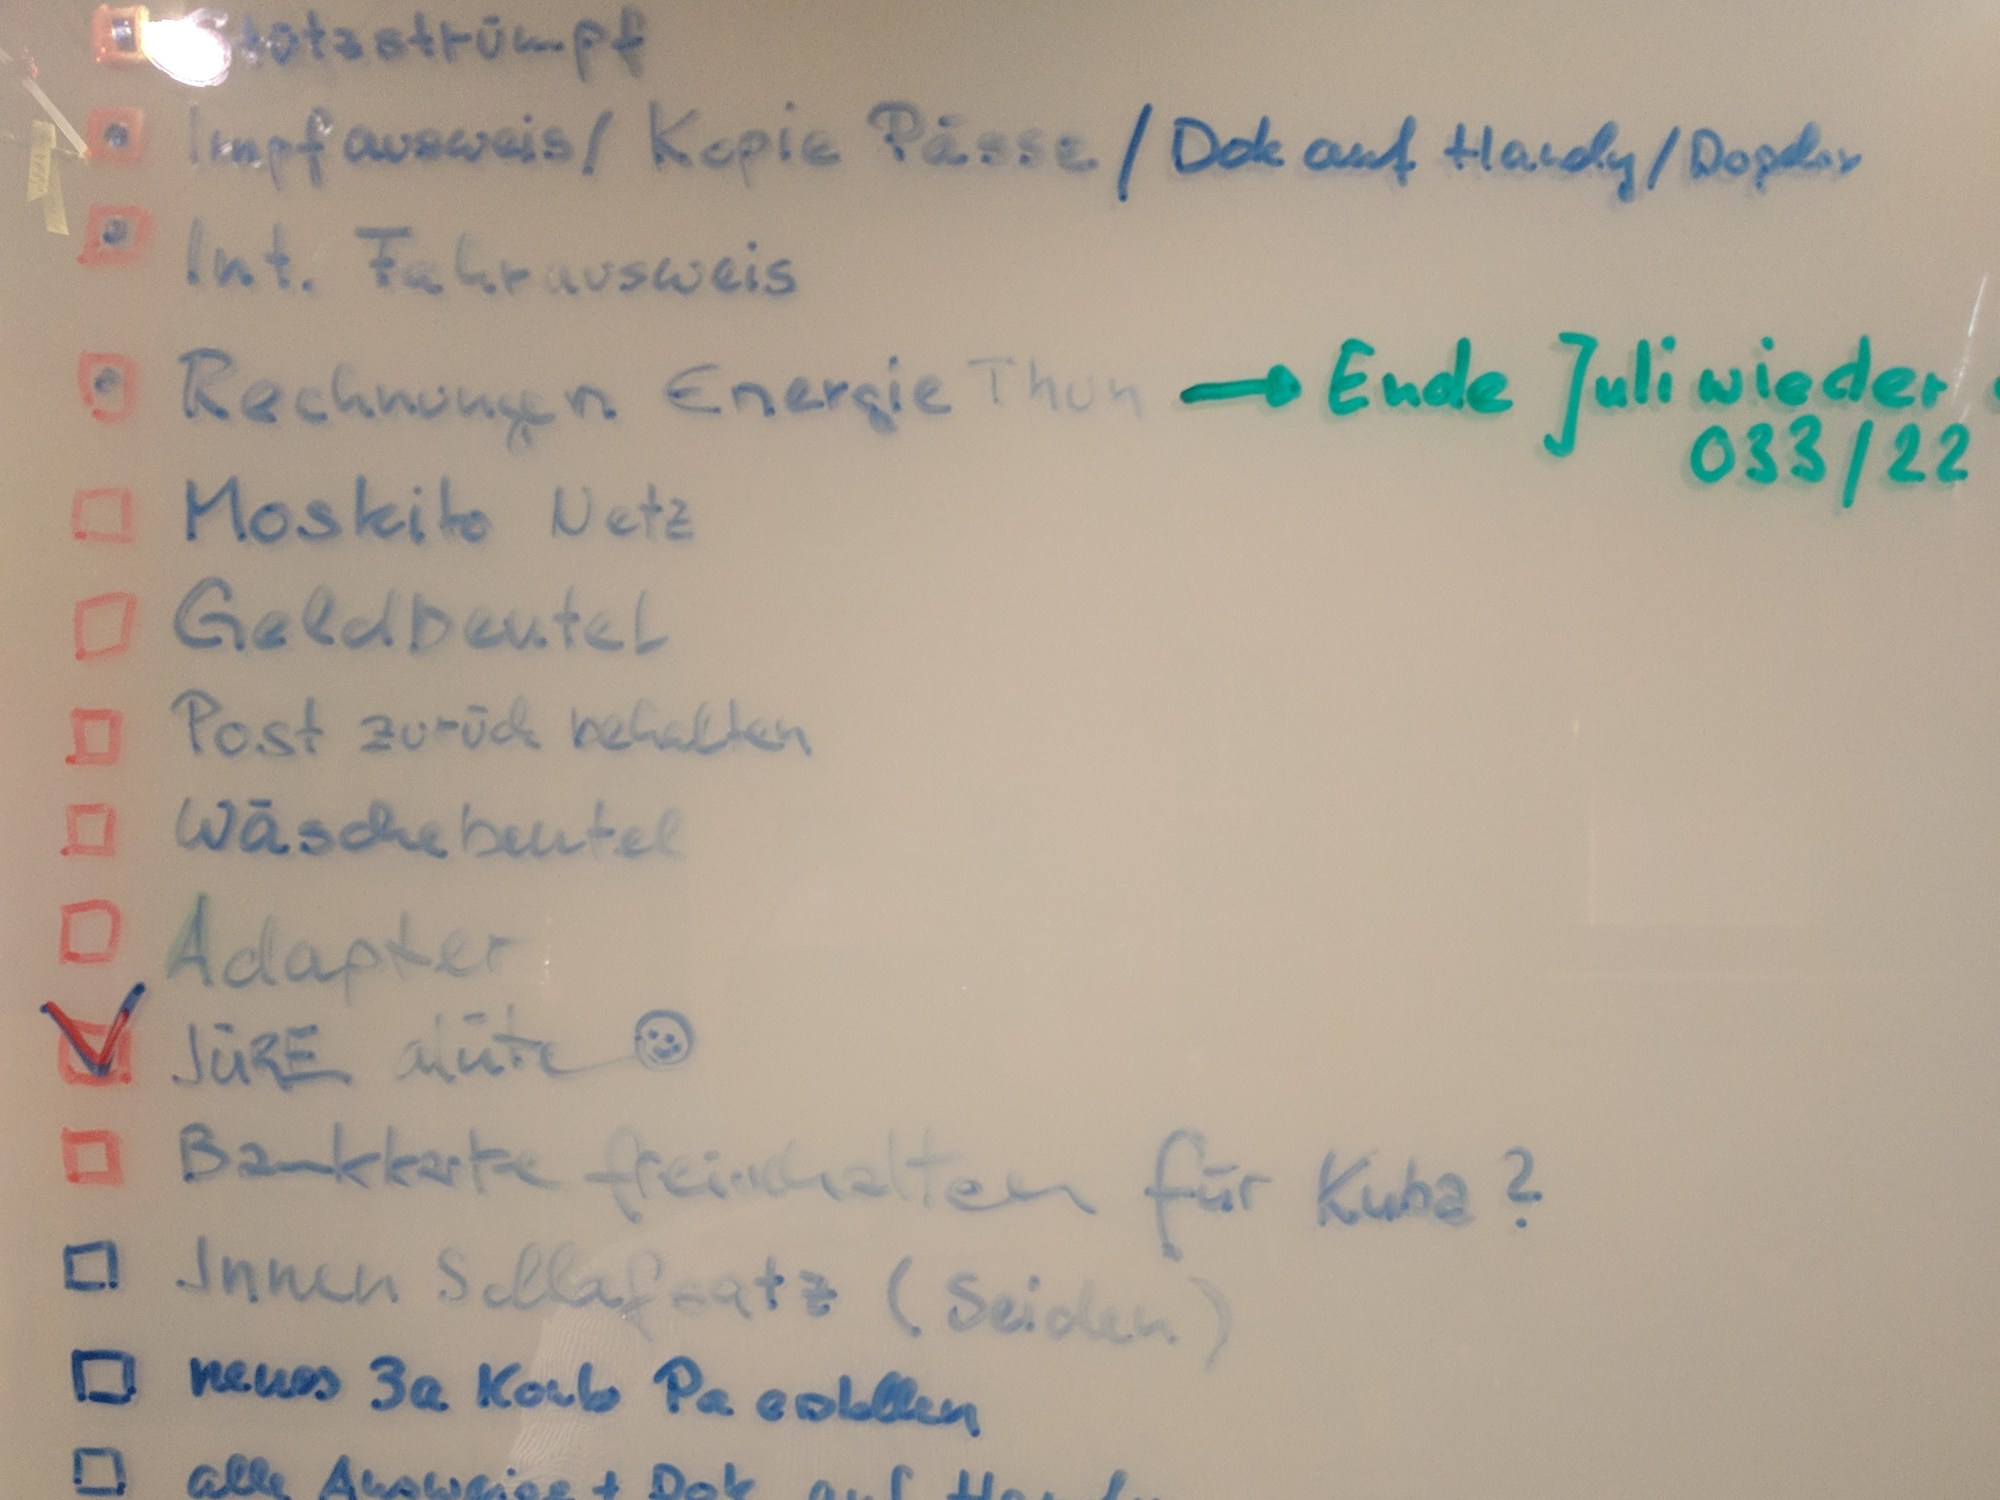 Impfausweis / Kopie Pässe / Dok auf Handy /
Int. Fahrausweis
Rechnungen Energie Thun → Ende Juli wieder
033/22
Moskito Netz
Geldbeutel
Post zurück behalten
Wäschebeutel
Adapter
JÜRE
Bankkarte für Kuba?
Innen Schlafsatz (Seiden)
neues 3a Konto Pa erstellen
alle Ausweise + Dok auf Handy